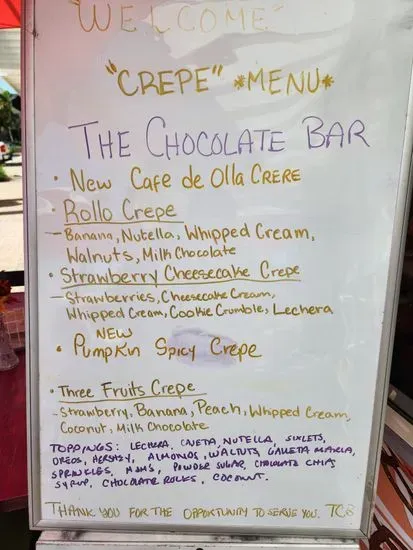 "WELCOME"
"CREPE" *MENU*
THE CHOCOLATE BAR
• New Cafe de Olla CRERE
• Rollo Crepe
- Banana, Nutella, Whipped Cream,
Walnuts, Milk Chocolate
• Strawberry Cheesecake Crepe
- Strawberries, Cheesecake Cream,
Whipped Cream, Cookie Crumble, Lechera
NEW
• Pumpkin Spicy Crepe
• Three Fruits Crepe
- Strawberry, Banana, Peach, Whipped Cream,
Coconut, Milk Chocolate
TOPPINGS: LECHERA, CAJETA, NUTELLA,
OREOS, HERSHEY, ALMONDS, WALNUTS, GALLETA MARIA,
SPRINKLES, M&M'S, POWDER SUGAR, CHOCOLATE CHIPS
SYRUP, CHOCOLATE ROCKS, COCONUT.
THANK YOU FOR THE OPPORTUNITY TO SERVE YOU. TCB